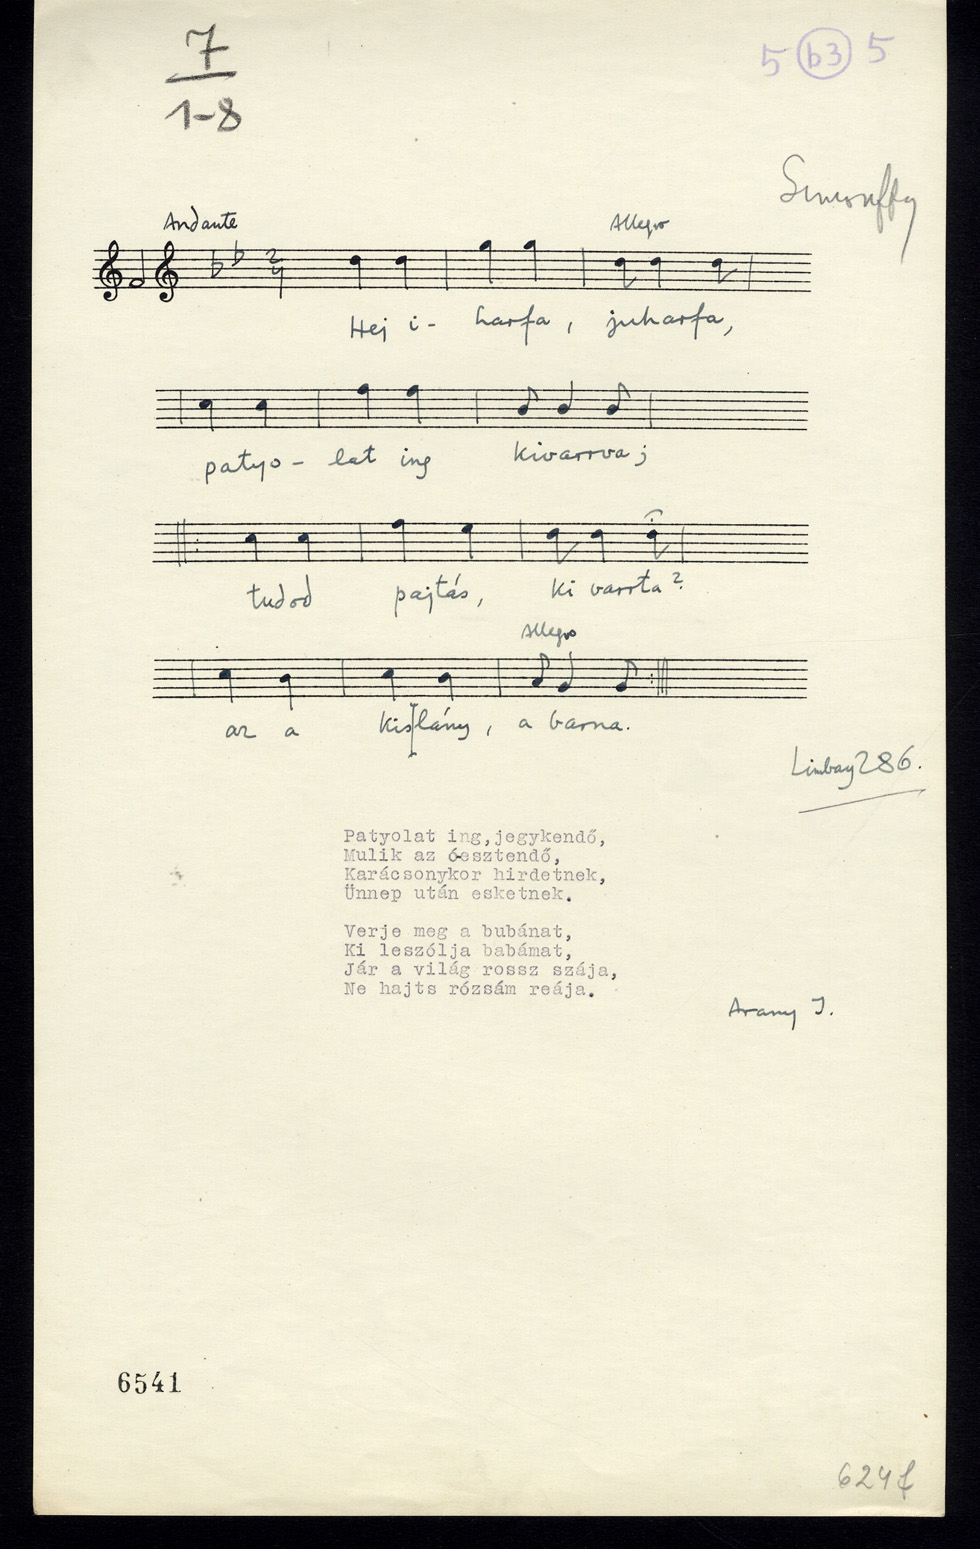 7
1-8
5 b3 5
Simonffy
Andante
Allegro
2
4
Hej i- harfa, juharfa,
patyo- lat ing kivarrva;
tudod pajtás, ki varrta?
Allegro
az a kislány, a barna.
Limbay 286.
Patyolat ing,jegykendő,
Mulik az óesztendő,
Karácsonykor hirdetnek,
Ünnep után esketnek.
Verje meg a bubánat,
Ki leszólja babámat,
Jár a világ rossz szája,
Ne hajts rózsám reája.
Arany J.
6541